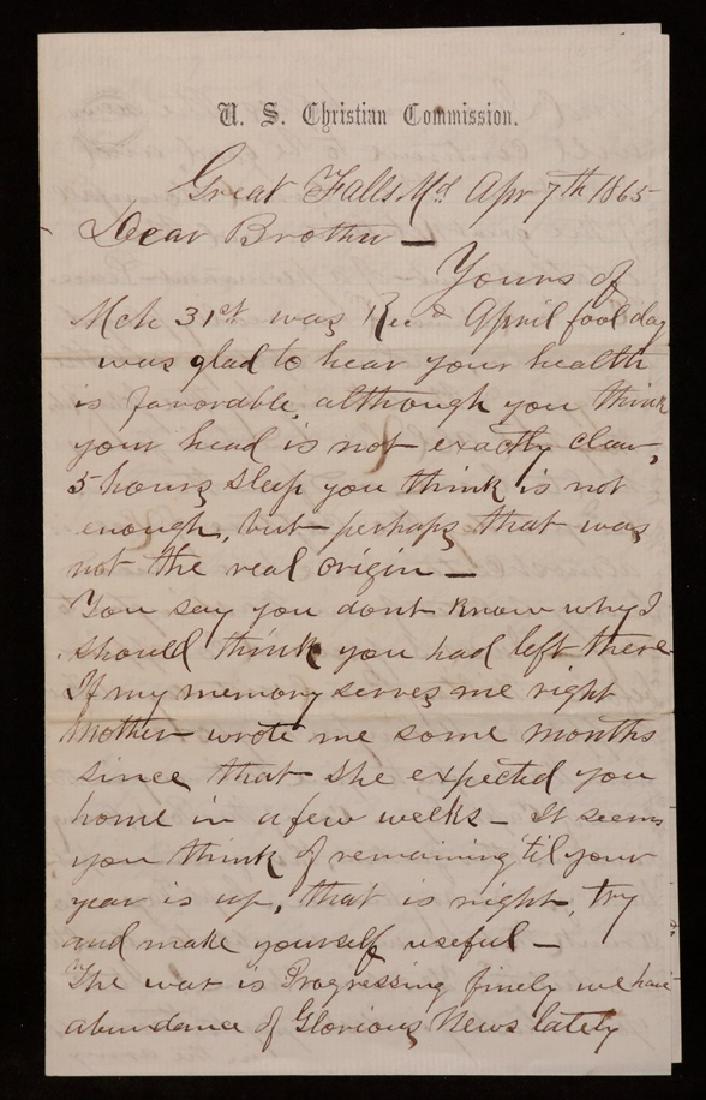 U. S. Christian Commission.
Great Falls Md Apr 7th 1865
Dear Brother —
Yours of
Mch 31st was Recd April fool day
was glad to hear your health
is favorable, although you think
your head is not exactly clear,
5 hours sleep you think is not
enough, but perhaps that was
not the real origin —
You say you dont know why I
should think you had left there
If my memory serves me right
Mother wrote me some months
since that she expected you
home in a few weeks — It seems
you think of remaining 'til your
year is up, that is right, try
and make yourself useful —
The war is Progressing finely we have
abundance of Glorious News lately